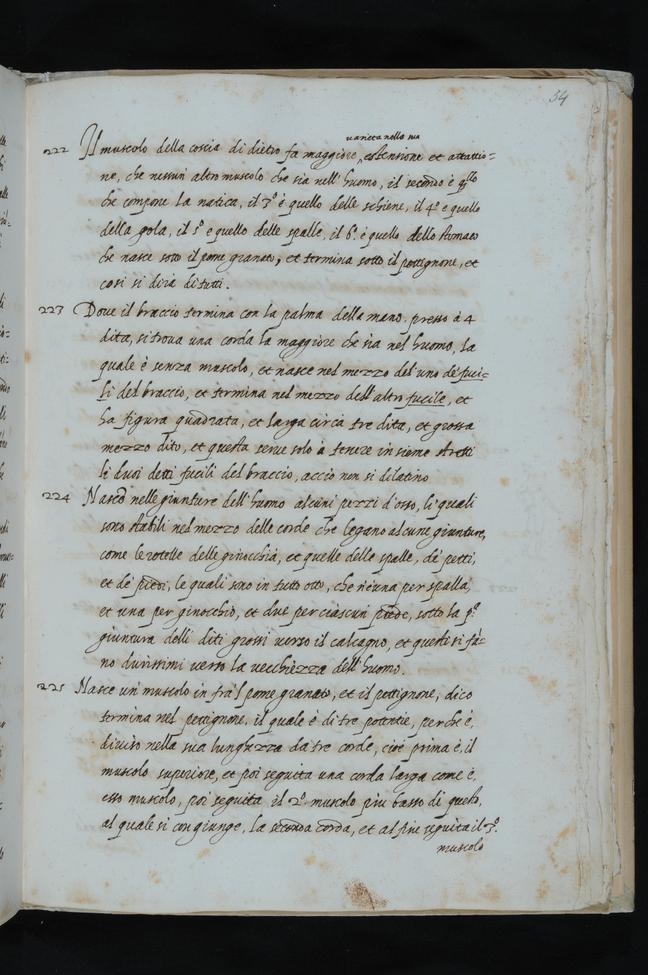 54
varietà nella sua
222 Il muscolo della coscia di dietro fa maggiore, estensione et attattio=
ne, che nessun altro muscolo che sia nell'huomo, il secondo è qllo
che compone la natica, il 3.º è quello delle schiene, il 4.º è quello
della gola, il 5.º è quello delle spalle, il 6.º è quello dello stomaco
che nasce sotto il pome granato, et termina sotto il pettignone, et
così si dirà di tutti.
223 Dove il braccio termina con la palma della mano, presso à 4
dita, si trova una corda la maggiore che sia nel huomo, la
quale è senza muscolo, et nasce nel mezzo del uno de fuci=
li del braccio, et termina nel mezzo dell'altro fucile, et
ha figura quadrata, et larga circa tre dita, et grossa
mezzo dito, et questa serve solo à tenere insieme stretti
li duoi detti fucili del braccio, acciò non si dilatino
224 Nasco nelle giunture dell'huomo alcuni pezzi d'osso, li quali
sono stabili nel mezzo delle corde che legano alcune giunture,
come le rotelle delle ginocchia, et quelle delle spalle, de petti,
et de piedi, le quali sono in tutto otto, che n'è una per spalla,
et una per ginocchio, et due per ciascun piede, sotto la p.ª
giuntura delli diti grossi verso il calcagno, et queste si fa=
no durissimi verso la vecchiezza dell'huomo.
225 Nasce un muscolo in fra'l pome granato, et il pettignone, dico
termina nel pettignone, il quale è di tre potentie, perche è
diviso nella sua lunghezza da tre corde, cioè prima è il
muscolo superiore, et poi seguita una corda larga come è
esso muscolo, poi seguita il 2.º muscolo piu basso di questo,
al quale si congiunge, la seconda corda, et al fine seguita il 3.º
muscolo